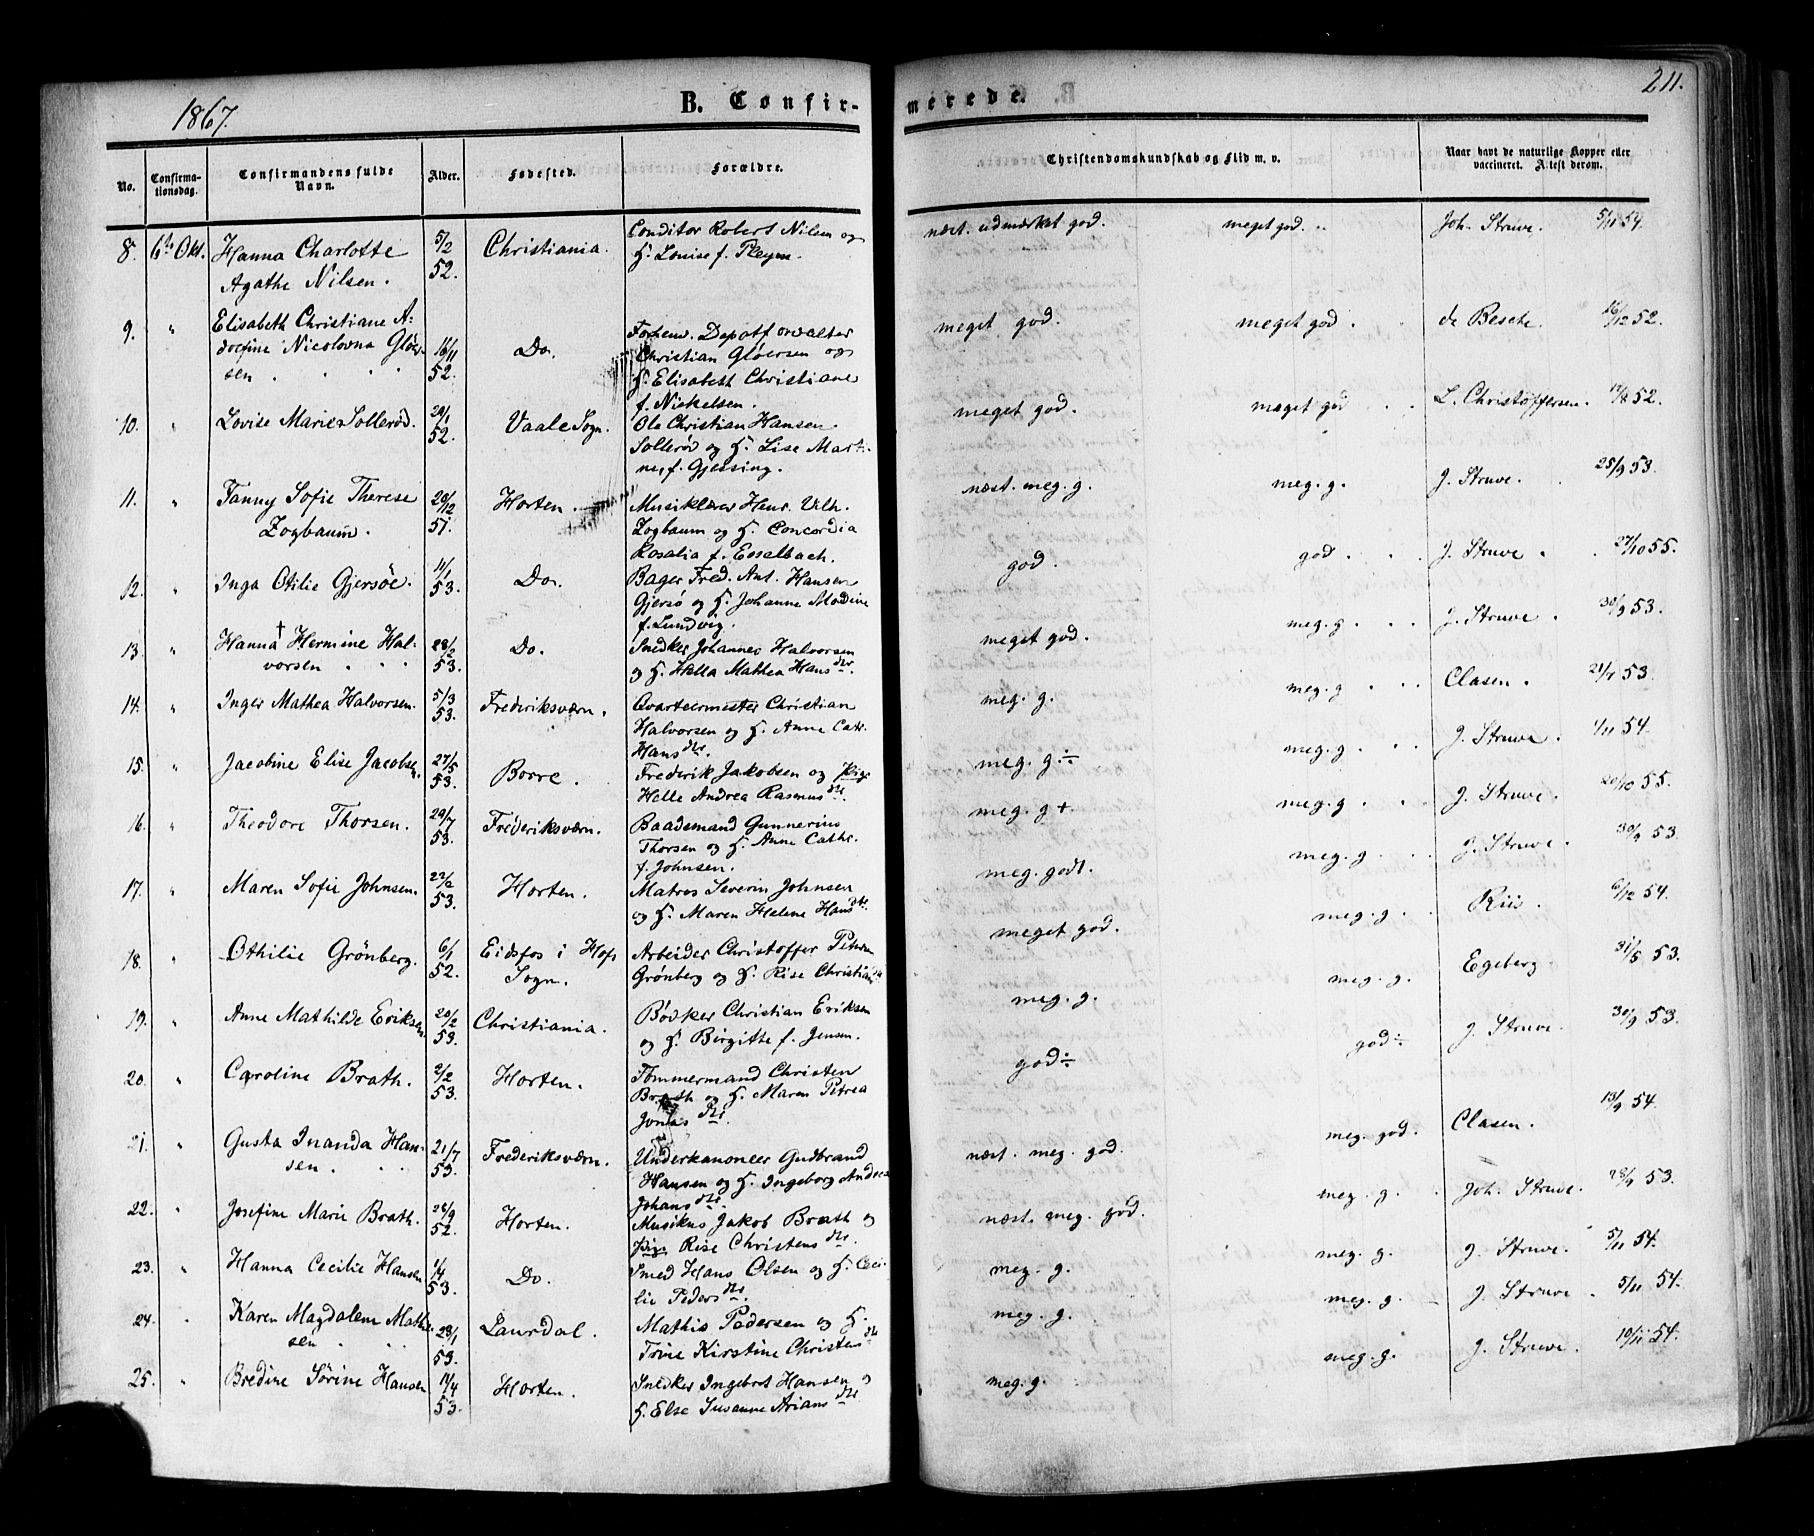 1867.
B. Confir-
merede.
211.
No.
Confirma-
tionsdag.
Confirmandens fulde
Navn.
Alder.
Fødested.
Forældre.
Christendomskundskab og Flid m. v.
Naar havt de naturlige Kopper eller
vaccineret. Attest derom.
8. 6te Okt. Hanna Charlotte 5/2 Christiania. Conditor Robert Nilsen og næst. udmærket god. meget god. Joh. Struve. 5/11 54.
Agathe Nilsen. 52. H. Louise f. Pleym.
9. " Elisabeth Christiane A-
dolfine Nicolovna Glöer- 16/11 Do. Forhenv. Depotforvalter meget god. meget god. de Besche. 16/12 52.
sen 52. Christian Glöersen og
H. Elisabeth Christiane
f. Nickelsen.
10. " Lovise Marie Solleröd. 29/1 Vaale Sogn. Ole Christian Hansen meget god. meget god L. Christoffersen. 17/8 52.
52. Solleröd og H. Lise Marti-
ne f. Gjessing.
11. " Fanny Sofie Therese 29/12 Horten. Musiklærer Henr. Vilh. næst. meg. g. meg. g. J. Struve. 25/9 53.
Zogbaum. 51. Zogbaum og H. Concordia
Rosalia f. Esselbach.
12. " Inga Otilie Gjersöe. 11/1 Do. Bager Fred. Ant. Hansen god. god J. Struve 27/10 55.
53. Gjersö og H. Johanne Modine
f. Lundvig.
13. " Hanna † Hermine Hal- 28/2 Do. Snedker Johannes Halvorsen meget god. meg. g J. Struve 30/9 53.
vorsen 53. og H. Hella Mathea Hansdtr.
14. " Inger Mathea Halvorsen. 5/3 Frederiksværn. Qvarteermester Christian meg. g. meg. g Clasen. 21/7 53.
53. Halvorsen og H. Anne Cath.
Hansdtr.
15. " Jacobine Elise Jacobsen. 27/5 Borre. Frederik Jakobsen og Pige meg. g. ÷ meg. g J. Struve. 1/11 54.
53. Helle Andrea Rasmusdtr.
16. " Theodore Thorsen. 29/7 Frederiksværn. Baadsmand Gunnerius meg. g + meg. g J. Struve 20/10 55.
53. Thorsen og H. Anne Cathr.
f. Johnsen.
17. " Maren Sofie Johnsen. 22/2 Horten. Matros Severin Johnsen meg. godt. meg. g J. Struve. 30/9 53.
53. og H. Maren Helene Hansdtr.
18. " Othilie Grönberg. 6/1 Eidsfos i Hofs Arbeider Christoffer Petersen meget god. meg. g. Riis. 6/12 54.
52. Sogn. Grönberg og H. Rise Christians
19. " Anne Mathilde Eriksen 20/2 Christiania. Bödker Christian Eriksen meg. g. meg. g. Egeberg. 31/5 53.
53. og H. Birgitte f. Jensen.
20. " Caroline Brath. 2/2 Horten. Tømmermand Christen god ÷ god ÷ J. Struve 30/9 53.
53. Brath og H. Maren Petrea
Jonasdtr.
21. " Gusta Inanda Han- 21/7 Frederiksværn. Underkanoneer Gudbrand næst. meg. god. meg. god. Clasen. 13/9 54.
sen. 53. Hansen og H. Ingeborg Andrea
Johansdtr.
22. " Josefine Marie Brath. 26/9 Horten. Musikus Jakob Brath og næst. meg. god. meg. g. Joh. Struve. 53.
52. Pige Rise Christensdtr.
23. " Hanna Cecilie Hansen 1/4 Do. Smed Hans Olsen og H. Ceci- meg. g. meg. g. J. Struve. 5/11 54.
53. lie Pedersdtr.
24. " Karen Magdalene Mathi- 29/1 Laurdal. Mathis Pedersen og H. meg. g. meg. g. J. Struve 5/11 54.
sen 53. Trine Kirstine Christensdtr
25. " Bredine Sörine Hansen 11/4 Horten. Snedker Ingebret Hansen og meg. g. meg. g. J. Struve. 19/11 54.
53. H. Else Susanne Ariansdtr